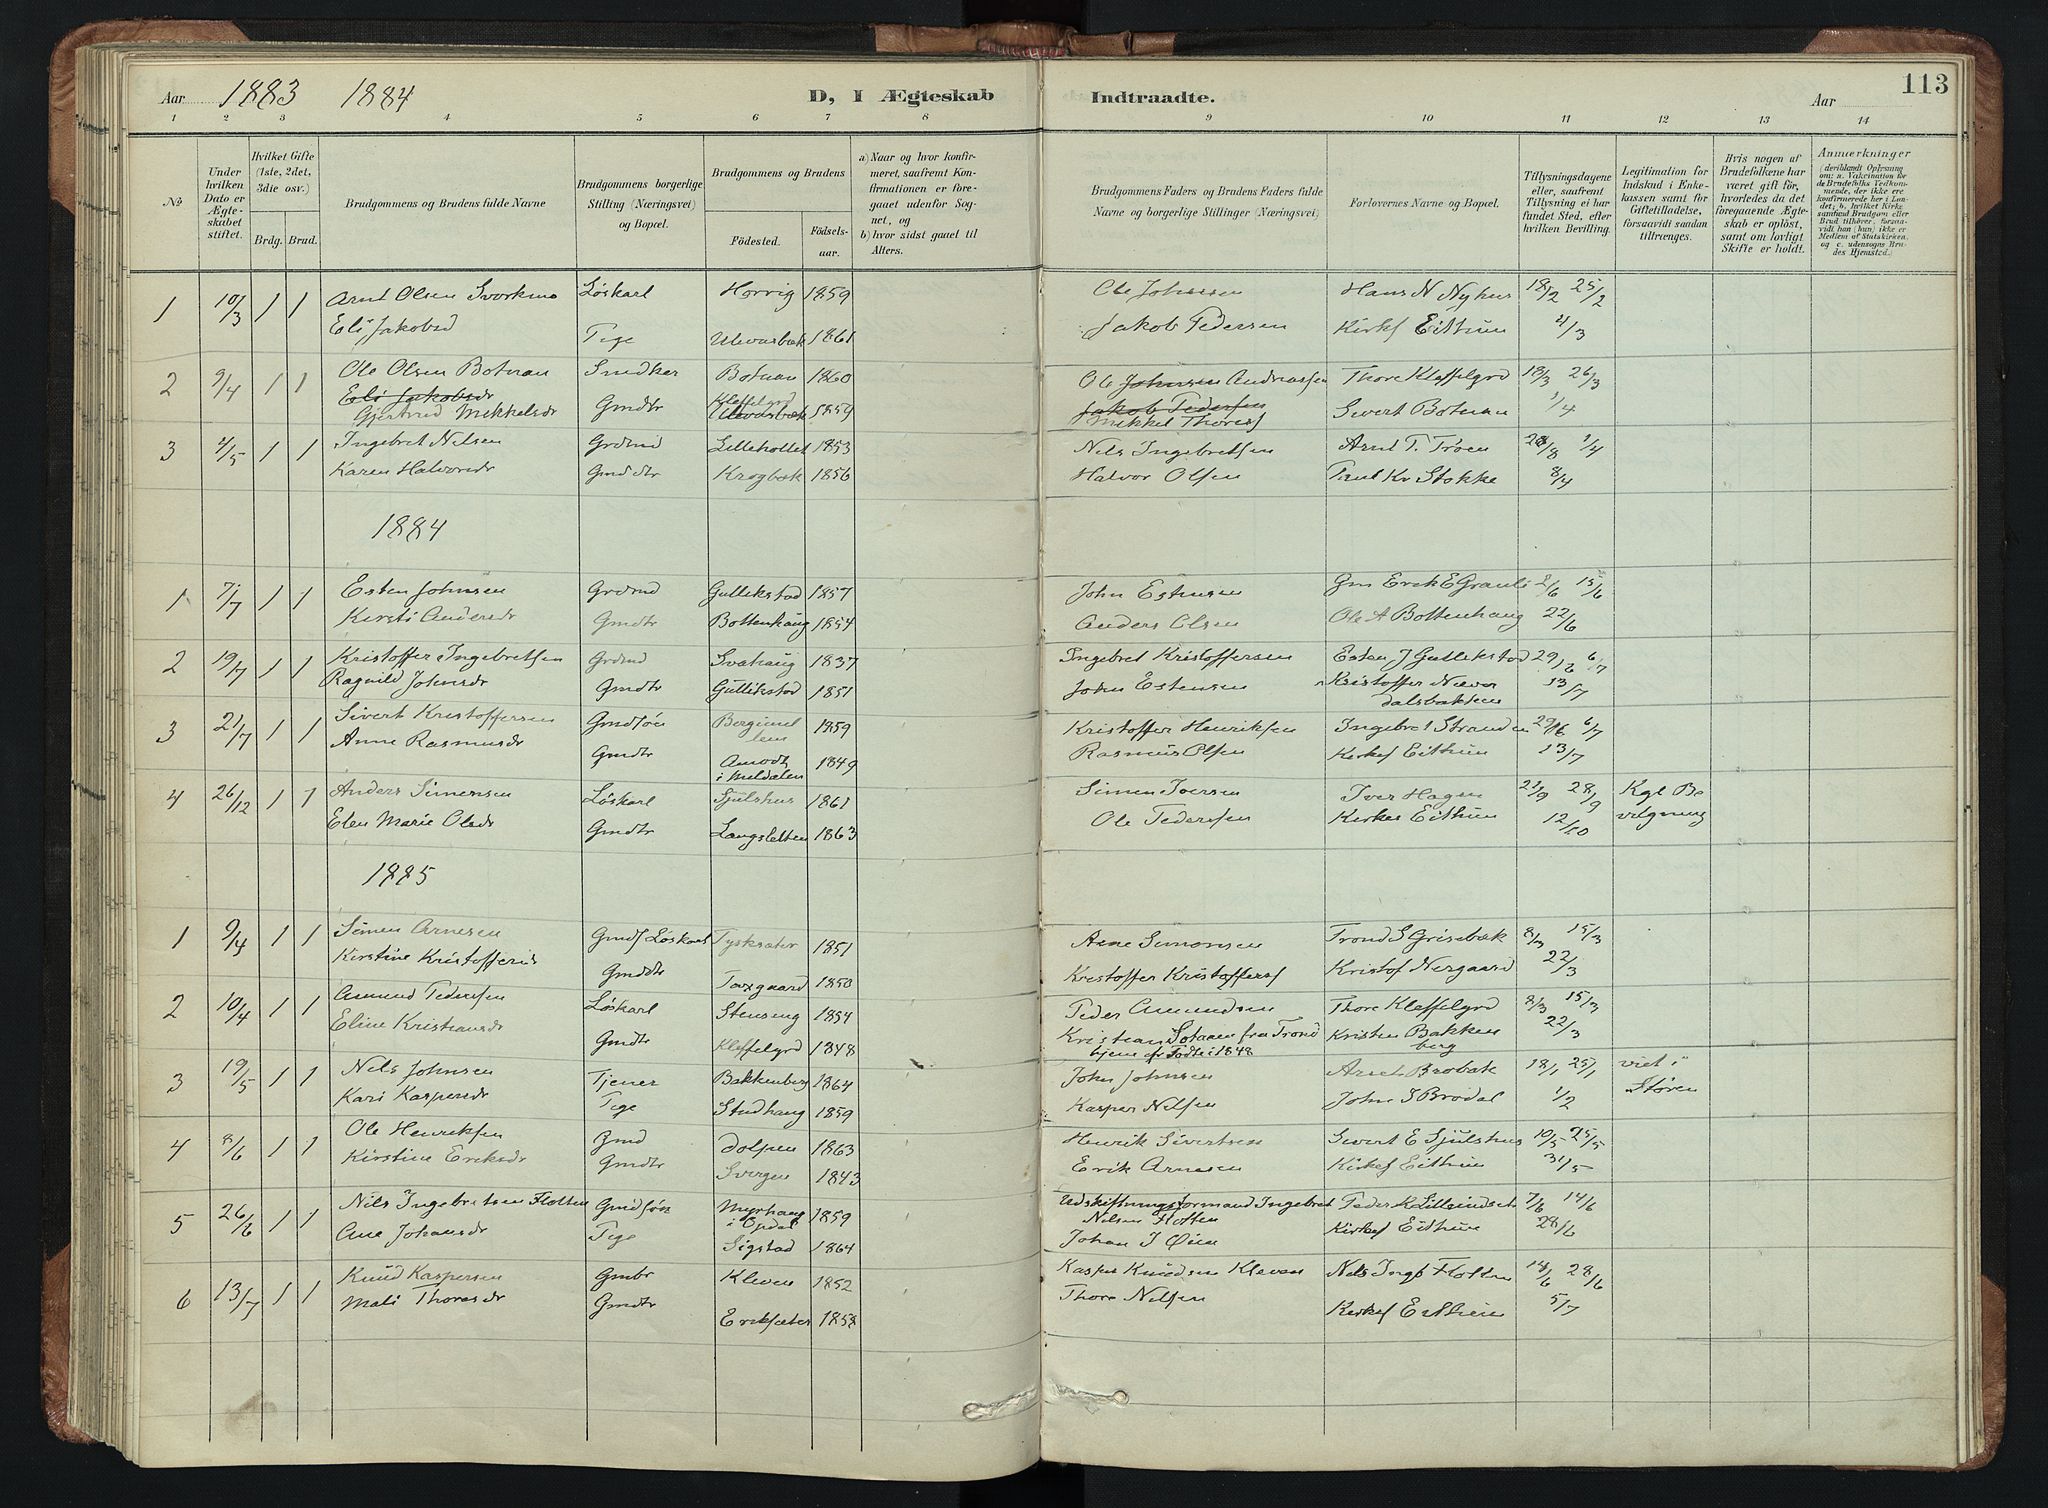 Aar 1883 1884 D, I Ægteskab Indtraadte. Aar 113
1 2 3 4 5 6 7 8 9 10 11 12 13 14
№
Under hvilken Dato er Ægteskabet stiftet.
Hvilket Gifte (1ste, 2det, 3die osv.)
Brdg. Brud.
Brudgommens og Brudens fulde Navne
Brudgommens borgerlige Stilling (Næringsvei) og Bopæl.
Brudgommens og Brudens
Fødested. Fødselsaar.
a) Naar og hvor konfirmeret, saafremt Konfirmationen er foregaaet udenfor Sognet, og
b) hvor sidst gaaet til Alters.
Brudgommens Faders og Brudens Faders fulde Navne og borgerlige Stillinger (Næringsvei)
Forlovernes Navne og Bopæl.
Tillysningsdagene eller, saafremt Tillysning ei har fundet Sted, efter hvilken Bevilling.
Legitimation for Indskud i Enkekassen samt for Giftetilladelse, forsaavidt saadan tiltrænges.
Hvis nogen af Brudefolkene har været gift før, hvorledes da det foregaaende Ægteskab er opløst, samt om lovligt Skifte er holdt.
Anmærkninger
(deriblandt Oplysning om: a. Vakcination for de Brudefolks Vedkommende, der ikke ere konfirmerede her i Landet; b. hvilket Kirkesamfund Brudgom eller Brud tilhører, forsaavidt han (hun) ikke er Medlem af Statskirken, og c. udensogns Brudes Hjemsted.)
1 10/3 1 1 Arnt Olsen Svorkmo Løskarl Horvig 1859 Ole Johnsen Hans N Nyhus 18/2 25/2
Eli Jakobsd Pige Ulvasbæk 1861 Jakob Pedersen Kirkes Eithun 4/3
2 9/4 1 1 Ole Olsen Botnan Smedker Botnan 1860 Ole Johnsen Andreassen Thore Kleffelgrd 18/3 26/3
Eli Jakobsdr Kleffelgrd Jakob Pedersen
Gjertrud Mikkelsdr Gmdtr Ulevasbæk 1859 Mikkel Thoress Sivert Botnan 1/4
3 4/5 1 1 Ingebret Nilsen Grdmd Lilleholtet 1853 Nils Ingebretsen Arnt T. Trøen 28/3 1/4
Karen Halvorsdr Gmddtr Krogbæk 1856 Halvor Olsen Paul Kr Stokke 8/4
1884
1 7/7 1 1 Esten Johnsen Grdmd Gullikstad 1857 John Estensen Gm Erik E Granli 8/6 15/6
Kirsti Andersdr Gmdtr Bottenhaug 1854 Anders Olsen Ole A Bottenhaug 22/6
2 19/7 1 1 Kristoffer Ingebretsen Grdmd Svahaug 1837 Ingebret Kristoffersen Esten J Gullikstad 29/6 6/7
Ragnild Johnsdr Gmdtr Gullikstad 1851 John Estensen Kristoffer Nævor 13/7
dalsbakken
3 21/7 1 1 Sivert Kristoffersen Gmdsøn Bergsmel 1859 Kristoffer Henriksen Ingebret Stranden 29/6 6/7
Anne Rasmusdr Gmdtr Amodt 1849 Rasmus Olsen Kirkes Eithun 13/7
i Meldalen
4 26/12 1 1 Anders Simensen Løskarl Sjulshus 1861 Simen Iversen Iver Hagen 21/9 28/9 Kgl Be
Elen Marie Olsdr Gmdtr Langsletten 1863 Ole Pedersen Kirkes Eithun 12/10 vilgning
1885
1 9/4 1 1 Simen Arnesen Gmds Løskarl Tyskæter 1851 Arne Simonsen Trond S Grisebæk 8/3 15/3
Kirstine Kristoffersd Gmddtr Torgaard 1850 Kristoffer Kristoffers Kristof Nergaard 22/3
2 10/4 1 1 Amund Pedersen Løskarl Stenseng 1854 Peder Amundsen Thore Kleffelgrd 8/3 15/3
Eline Kristiansdr Gmdtr Kleffelgrd 1848 Kristian Sotaaen fra Trond Kristen Bakken 22/3
hjem Født i 1848 berg
3 19/5 1 1 Nels Johnsen Tjener Bakkenberg 1864 John Johnsen Arnt Brobak 18/1 25/1 viet i
Kari Kaspersdr Pige Studhaug 1859 Kasper Nilsen John S Brodal 1/2 Støren
4 8/6 1 1 Ole Henriksen Gmd Dolpen 1863 Henrik Sivertsen Sivert E Sjulshus 10/5 25/5
Kirstine Eriksdr Gmdtr Svergen 1843 Erik Arnesen Kirkes Eithun 31/5
5 26/6 1 1 Nils Ingebretsen Flotten Gmdsøn Myrhaug 1859 Udskiftningsformand Ingebret Peder K Lilleindset 7/6 14/6
i Opdal Nilsen Flotten
Ane Johansdr Pige Sigstad 1864 Johan J Øien Kirkes Eithun 28/6
6 13/7 1 1 Knud Kaspersen Gmbr Kleven 1852 Kasper Knudsen Kleven Nels Ingb Flotten 18/6 28/6
Mali Thoresdr Gmdtr Eriksæter 1858 Thore Nelsen Kirkes Eithun 5/7